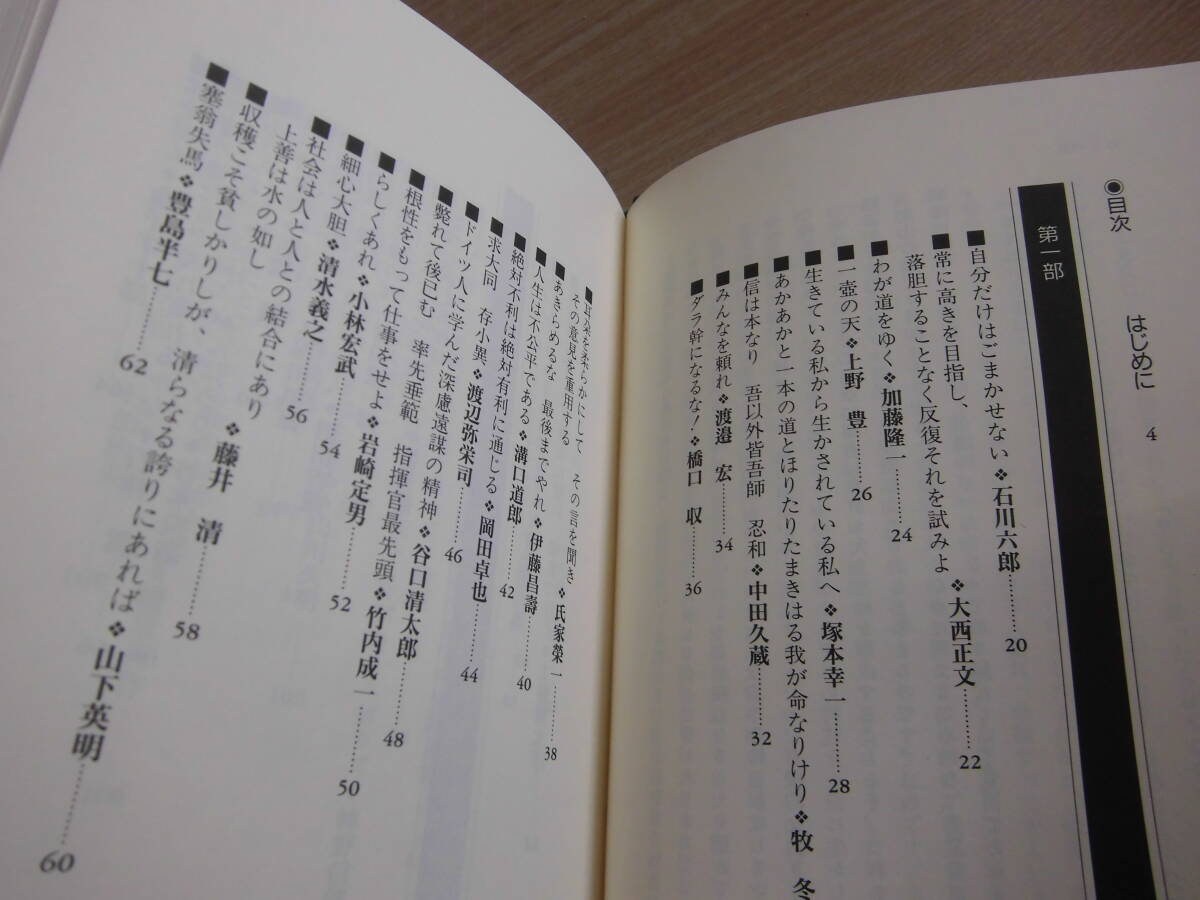 ◉目次
はじめに 4
第一部
■自分だけはごまかせない❖石川六郎…………20
■常に高きを目指し、
落胆することなく反復それを試みよ❖大西正文…………22
■わが道をゆく❖加藤隆一…………24
■一壺の天❖上野 豊…………26
■生きている私から生かされている私へ❖塚本幸一…………28
■あかあかと一本の道とほりたりたまきはる我が命なりけり❖牧 冬
■信は本なり 吾以外皆吾師 忍和❖中田久蔵…………32
■みんなを頼れ❖渡邉 宏…………34
■ダラ幹になるな!❖橋口 収…………36
■耳朶を柔らかにして その言を聞き
その意見を重用する❖氏家榮一…………38
■あきらめるな 最後までやれ❖伊藤昌壽…………40
■人生は不公平である❖溝口道郎…………42
■絶対不利は絶対有利に通じる❖岡田卓也…………44
■求大同 存小異❖渡辺弥栄司…………46
■ドイツ人に学んだ深慮遠謀の精神❖谷口清太郎…………48
■斃れて後已む 率先垂範 指揮官最先頭❖竹内成一…………50
■根性をもって仕事をせよ❖岩崎定男…………52
■らしくあれ❖小林宏武…………54
■細心大胆❖清水義之…………56
■社会は人と人との結合にあり
上善は水の如し❖藤井 清…………58
■収穫こそ貧しかりしが、清らなる誇りにあれば❖山下英明…………60
■塞翁失馬❖豊島半七…………62